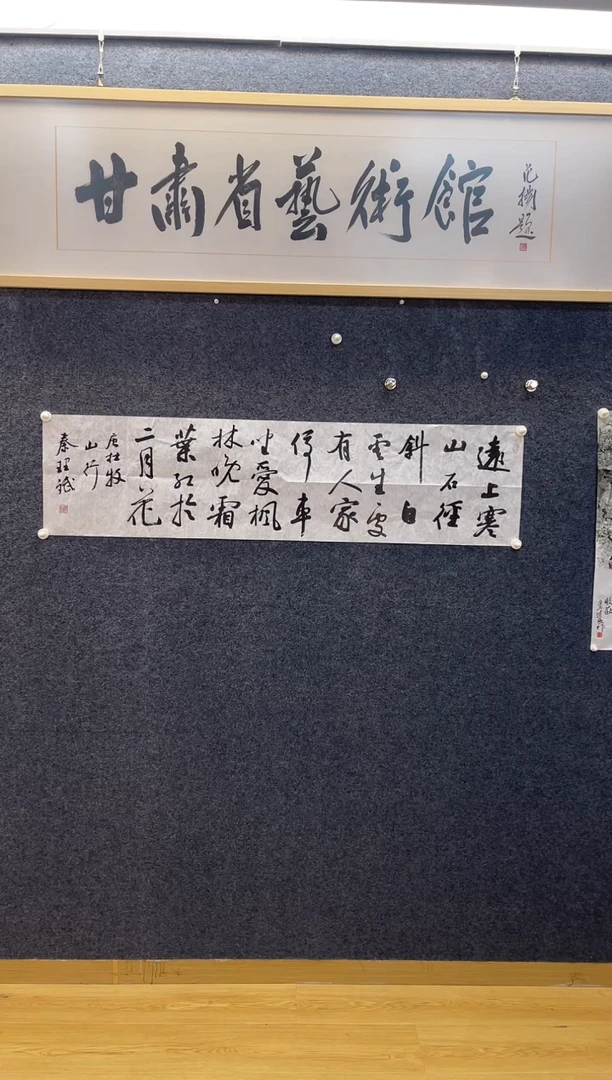 甘肅省藝術館
范撝題
遠上寒
山石徑
斜白
雲生處
有人家
停車
坐愛楓
林晚霜
葉紅於
二月花
唐杜牧
山行
秦理斌